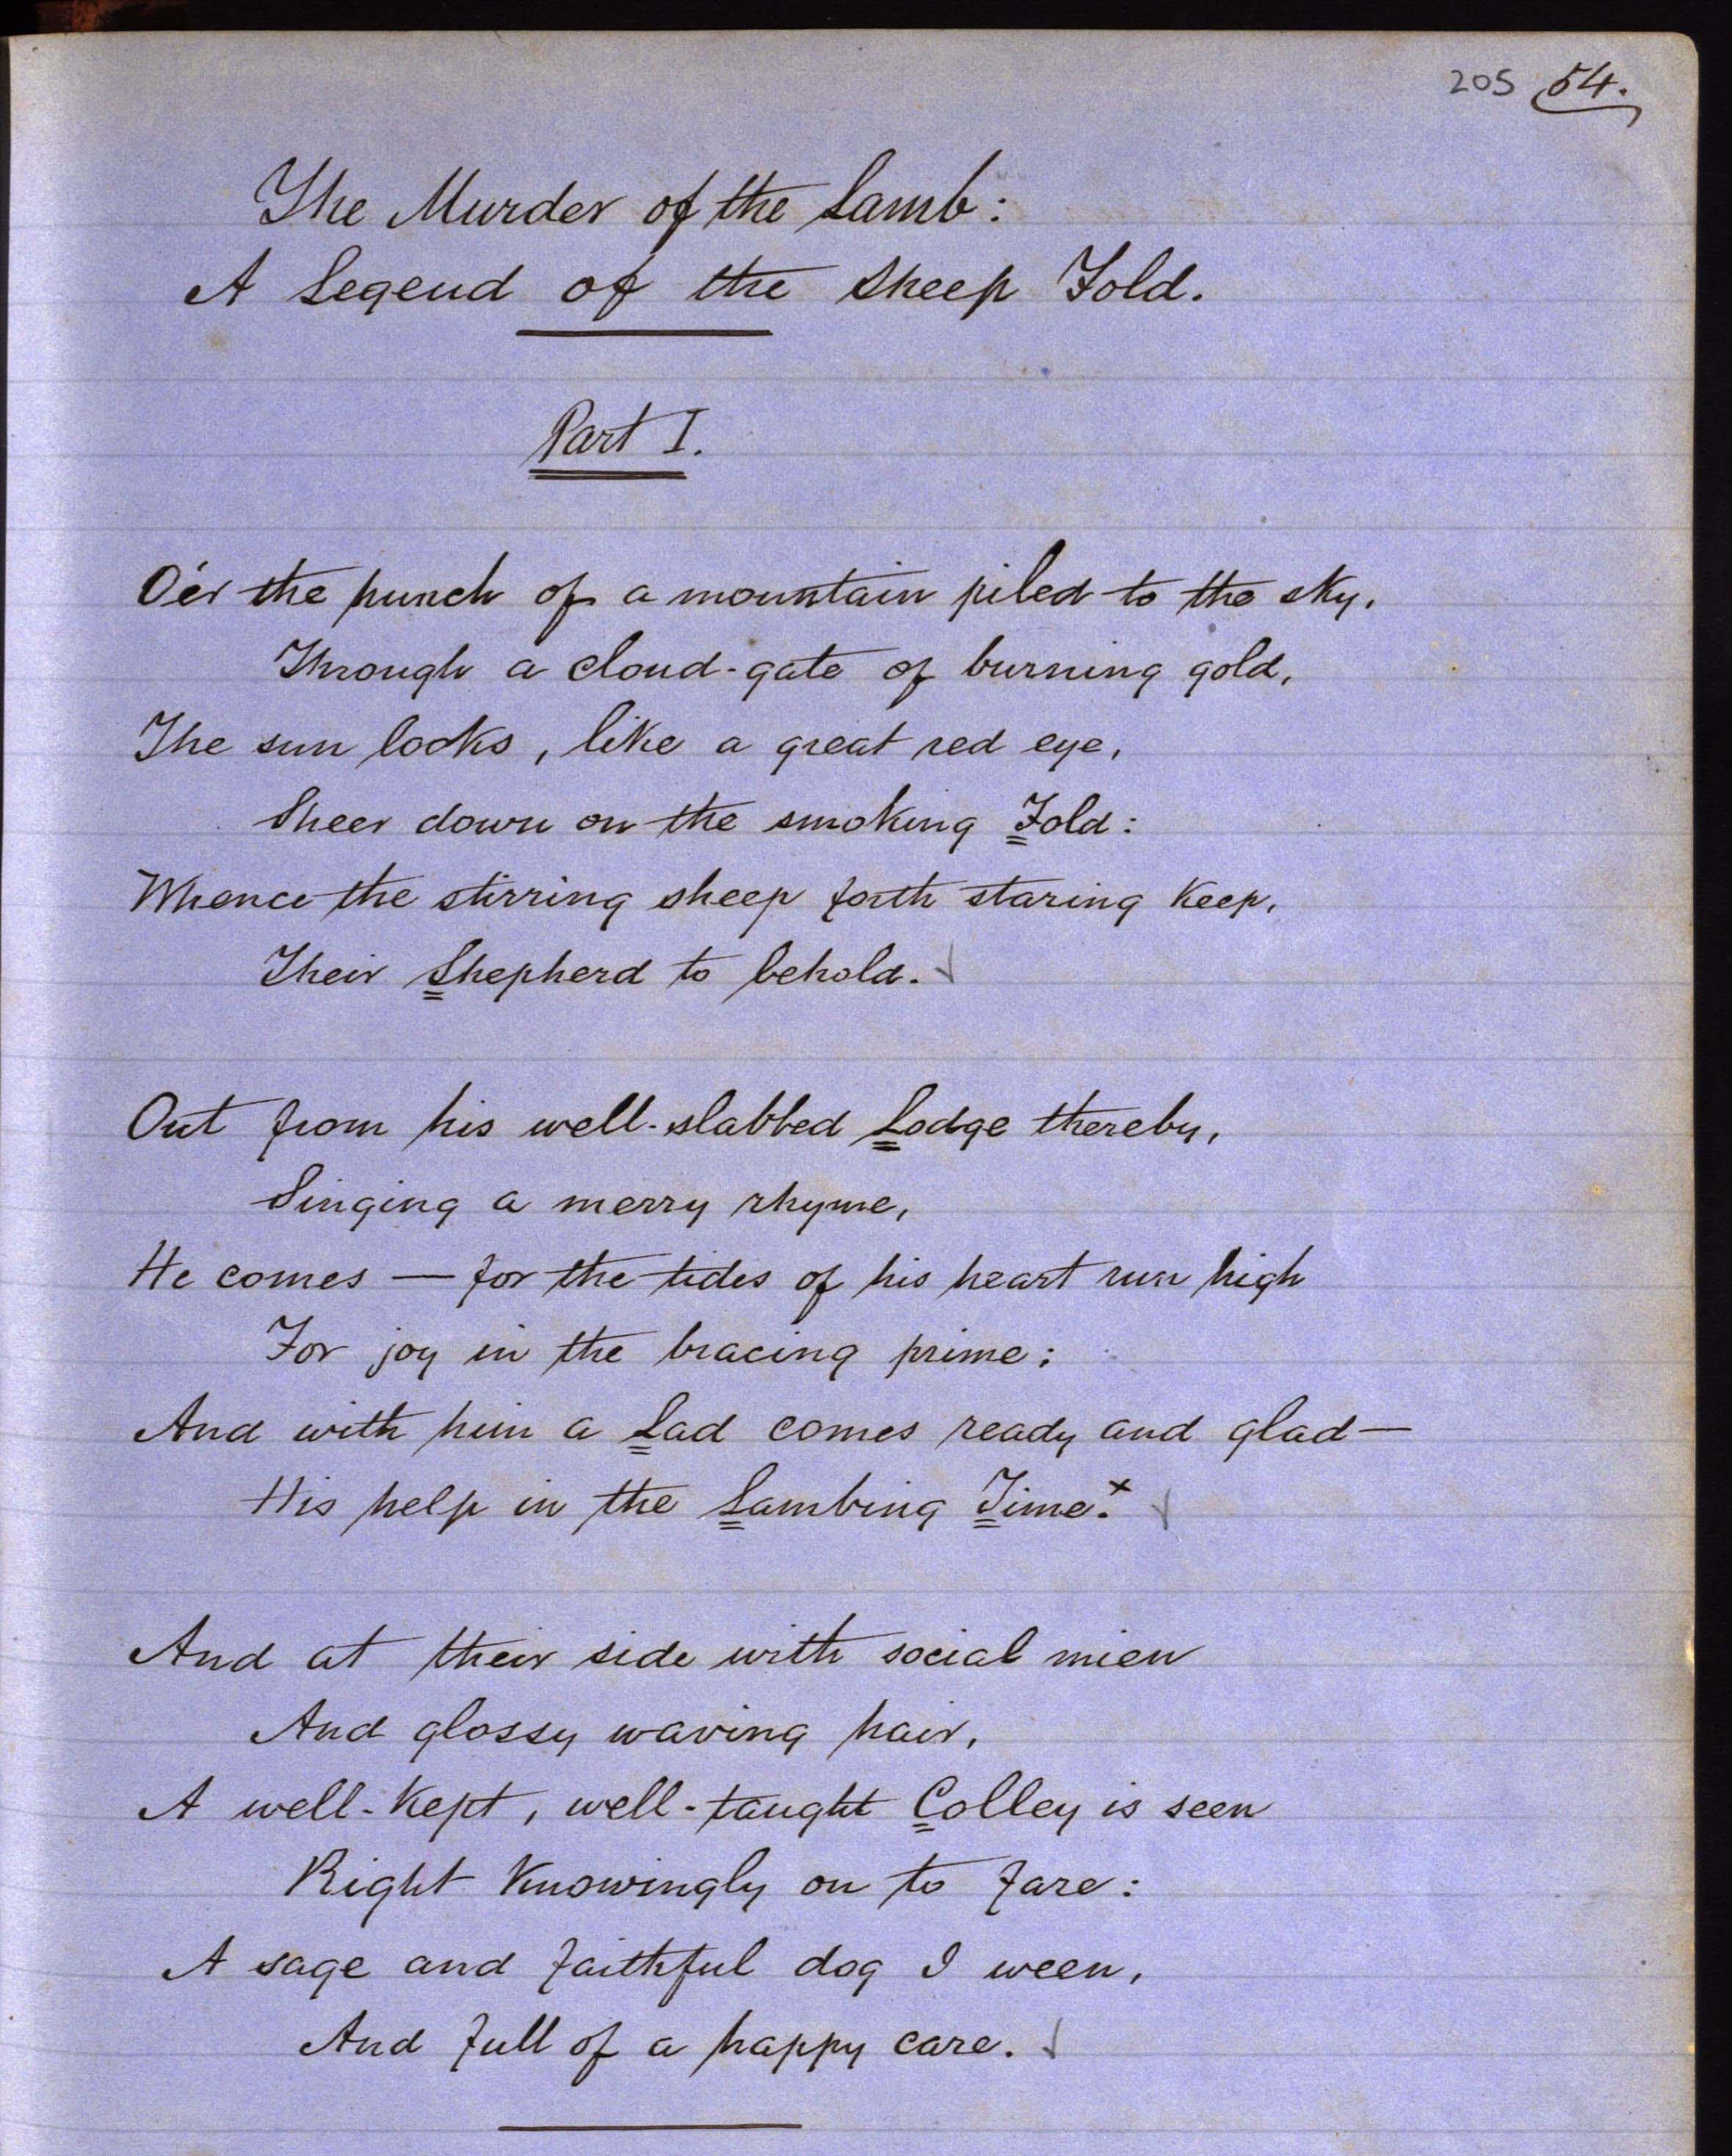 205 54.
The Murder of the Lamb:
A Legend of the Sheep Fold.
Part I.
O'er the hunch of a mountain piled to the sky,
Through a cloud-gate of burning gold,
The sun looks, like a great red eye,
Sheer down on the smoking Fold:
Whence the stirring sheep forth staring keep,
Their Shepherd to behold.
Out from his well-slabbed Lodge thereby,
Singing a merry rhyme,
He comes — for the tides of his heart run high
For joy in the bracing prime;
And with him a Lad comes ready and glad—
His help in the Lambing Time.x
And at their side with social mien
And glossy waving hair,
A well-kept, well-taught Colley is seen
Right knowingly on to fare:
A sage and faithful dog I ween,
And full of a happy care.